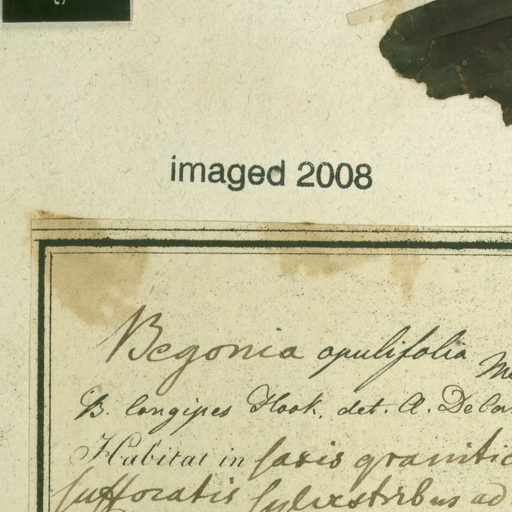 imaged 2008
Begonia opulifolia
B. longipes Hook. det. A. DeCan
Habitat in saxis granitic
suffocatis sylvestribus ad